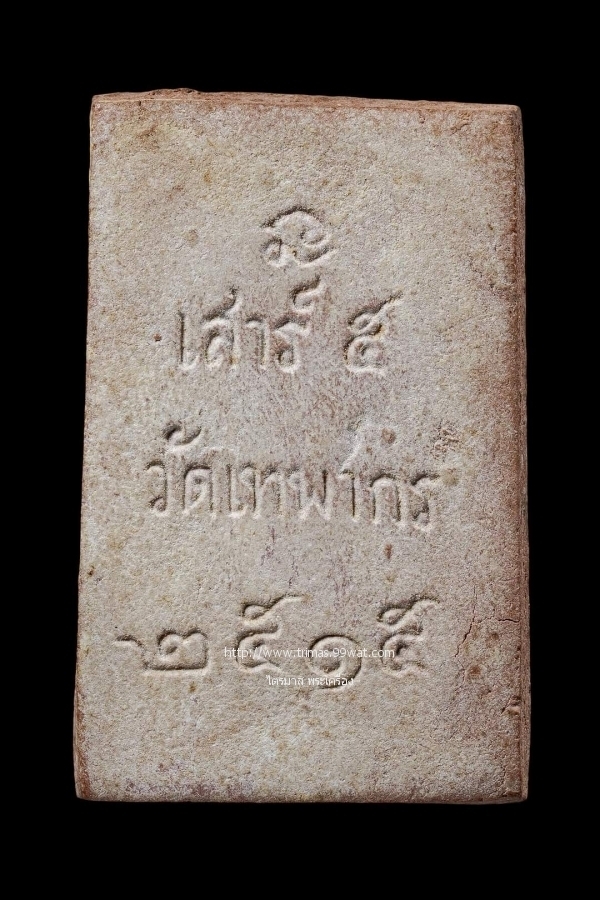 เสาร์ ๕
วัดเทพากร
๒๕๑๕
http://www.trimas.99wat.com
ไตรมาส พระเครื่อง